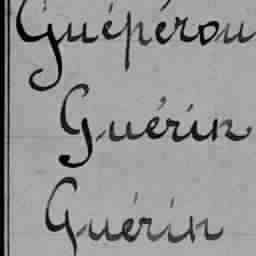 Guépérou
Guérin
Guérin